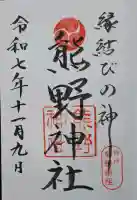 縁結びの神
熊野神社
令和七年十一月九日